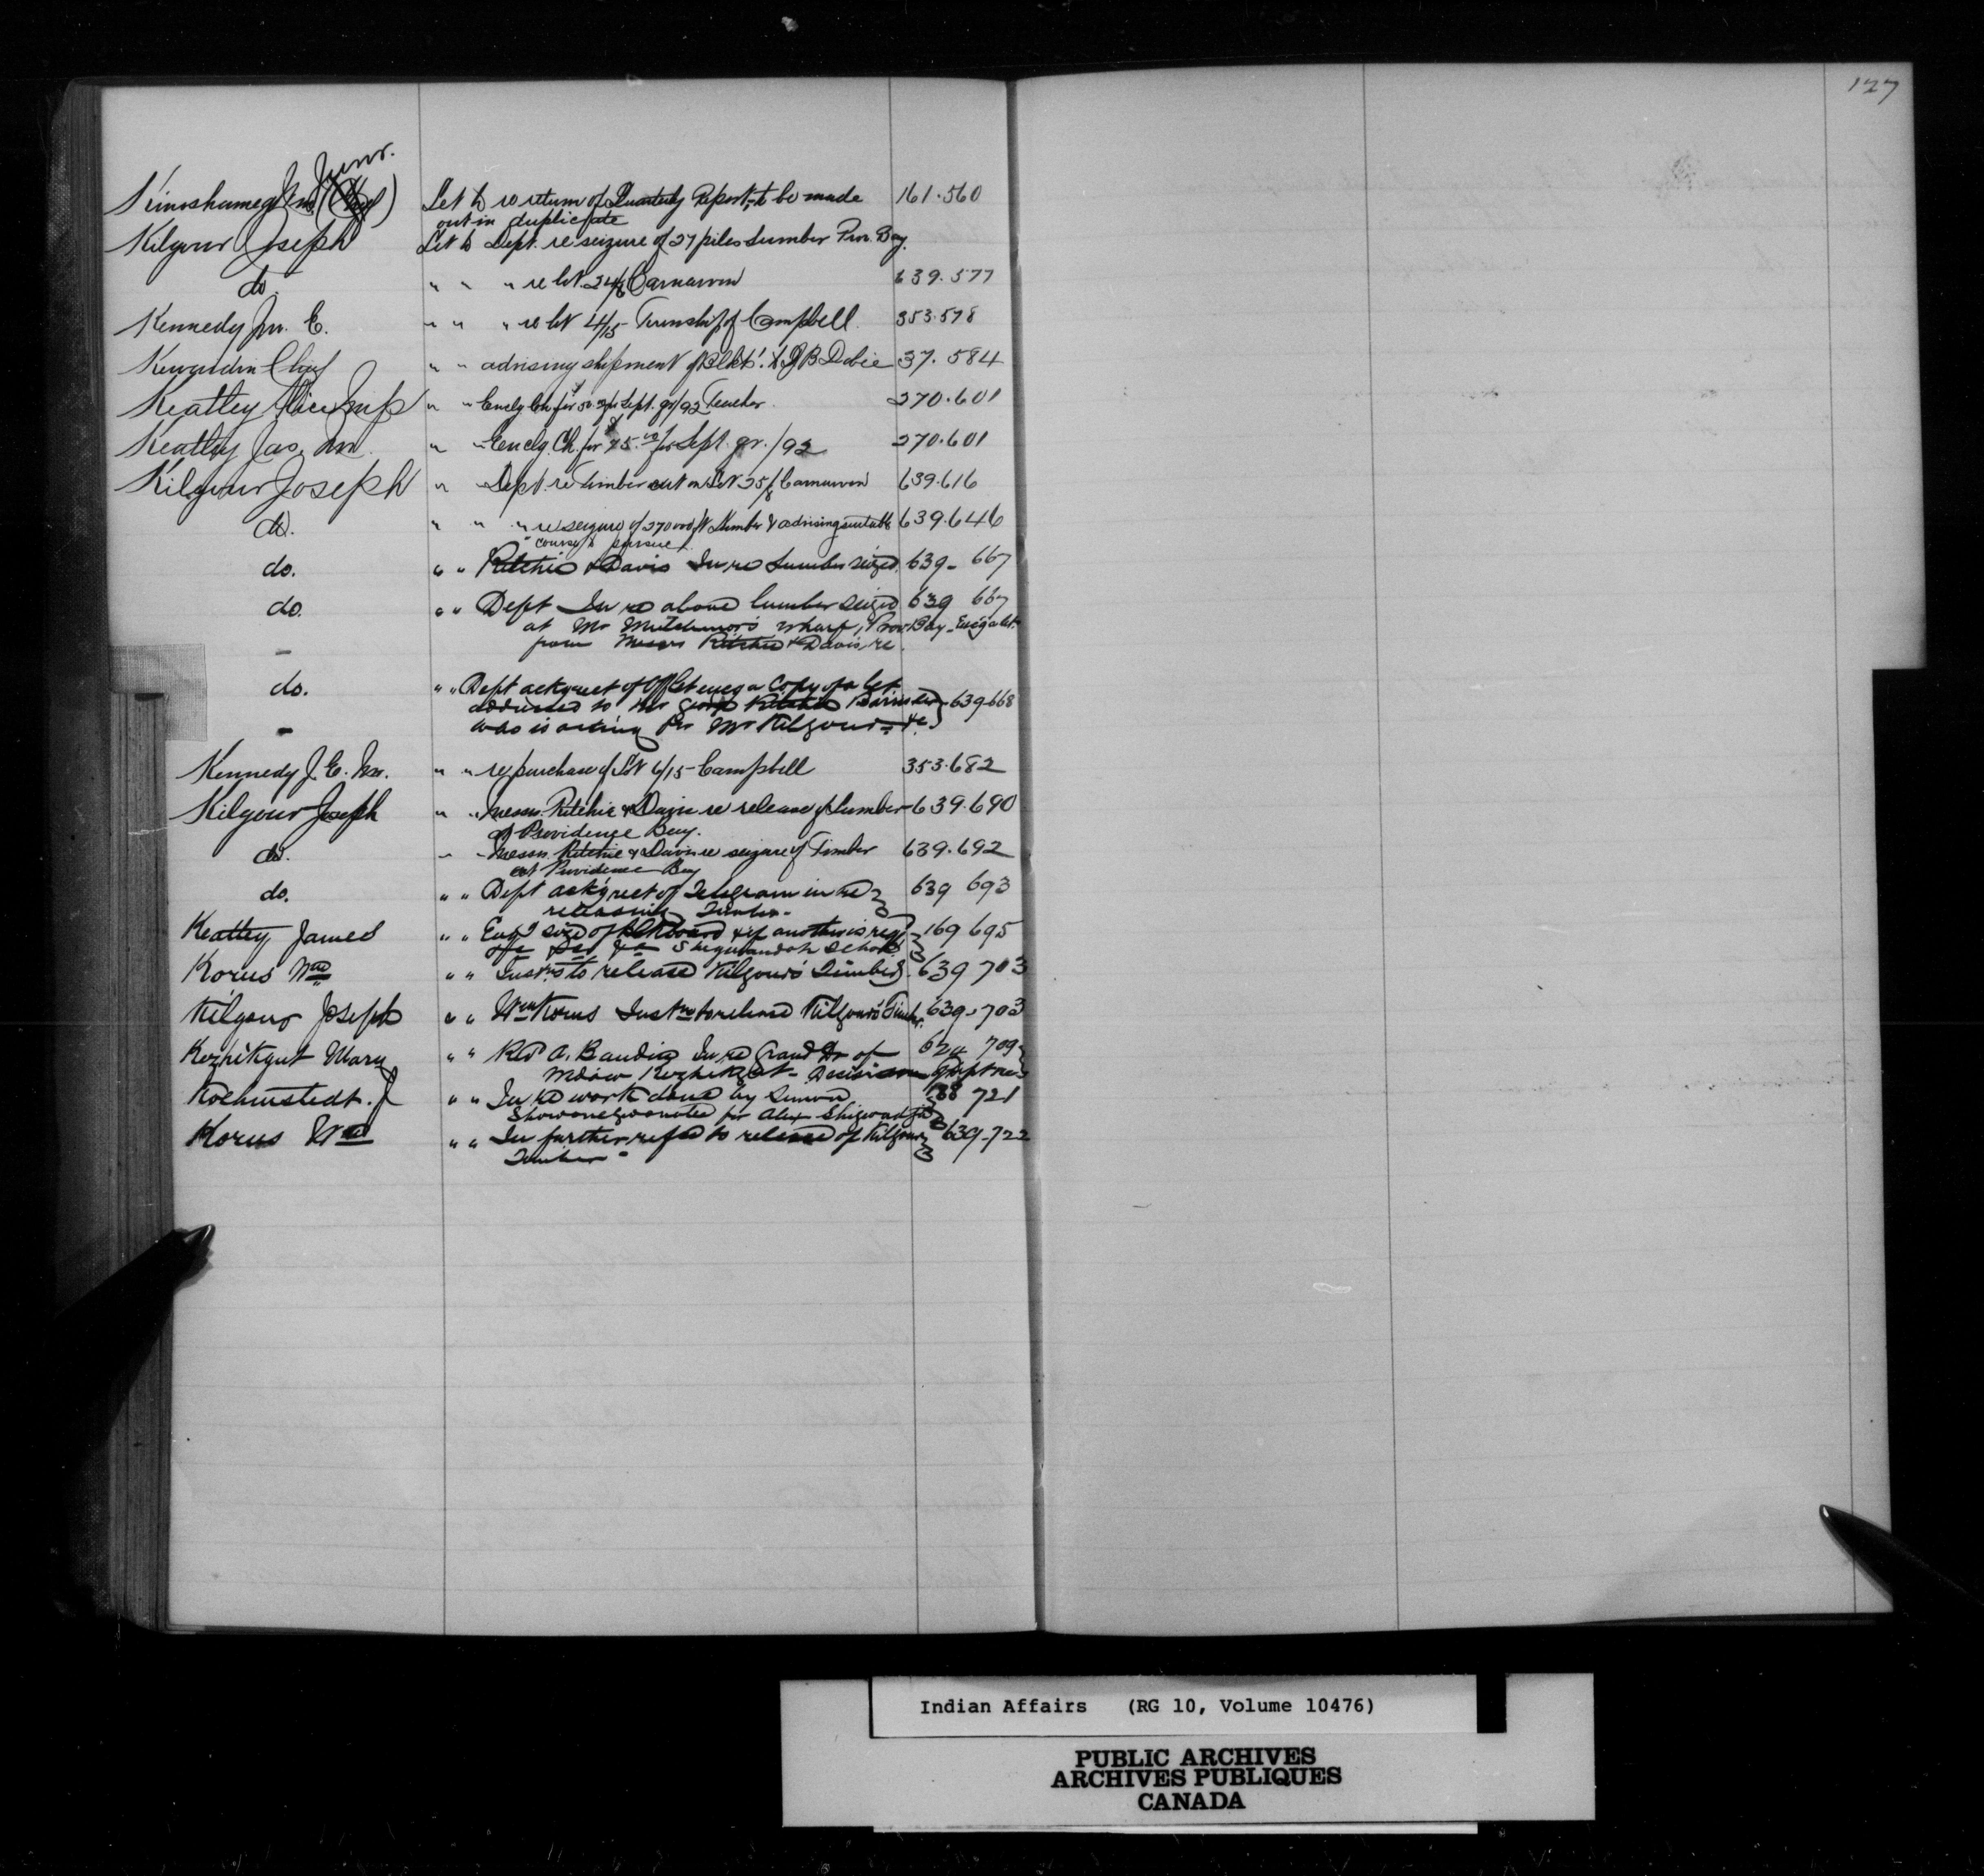 127
Junr.
Kinoshameg Jno (Chief) Let to re return of Quarterly Report, to be made 161.560
out in duplicate
Kilgour Joseph Let to Dept. re seizure of 27 piles Lumber Prov. Bay.
do. " " " re lot 24/8 Carnarvon 639.577
Kennedy Jno. E. " " " re lot 4/15 Township of Campbell 353.578
Kewaudin Chief " " advising shipment of Blkts. J B Dobie 37.584
Keatley Alice Miss " " Enclg Ch. for Sept. qr/92 Teacher 270.601
Keatley Jas. " " Enclg. Ch. for 75.00 for Sept. qr./92 270.601
Kilgour Joseph " " Dept. re Timber cut on Lot 25/8 Carnarvon 639.616
do. " " " re seizure of 270000 ft Lumber & advising suitable 639.646
course to pursue
do. " " Ritchie & Davis In re Lumber seized 639- 667
do. " " Dept In re above lumber seized 639 667
at Mr Mutchmor's wharf, Prov Bay - Encg a let.
from Messrs Ritchie & Davis, re.
do. " " Dept ackg rect of Off Let encg a Copy of a let
addressed to Mr Ritchie Barrister 639-668
who is acting for Mr Kilgour &c.
Kennedy J. E. Mr. " " re purchase of Lot 6/15 Campbell 353.682
Kilgour Joseph " " Messrs. Ritchie & Davis re release of lumber 639.690
at Providence Bay.
do. " " Messrs. Ritchie & Davis re seizure of Timber 639.692
at Providence Bay
do. " " Dept ackg rect of Telegram in re 639 693
releasing Timber -
Keatley James " " Enq size of & if another is reqd 169 695
Sheguiandah School
Korus Wm " " Instns to release Kilgour's Timber 639 703
Kilgour Joseph " " Wm Korus Instns to release Kilgour's Timber. 639-703
Kezhikgut Mary " " Revd A. Baudin In re Grand Dr of 624 709
Widow Kezhikgut - Decision of Dept re
Koehmstedt. J " " In re work done by Simon 88 721
for Alex
Korus Wm " " In further refce to release of Kilgour 639-722
Timber -
Indian Affairs (RG 10, Volume 10476)
PUBLIC ARCHIVES
ARCHIVES PUBLIQUES
CANADA